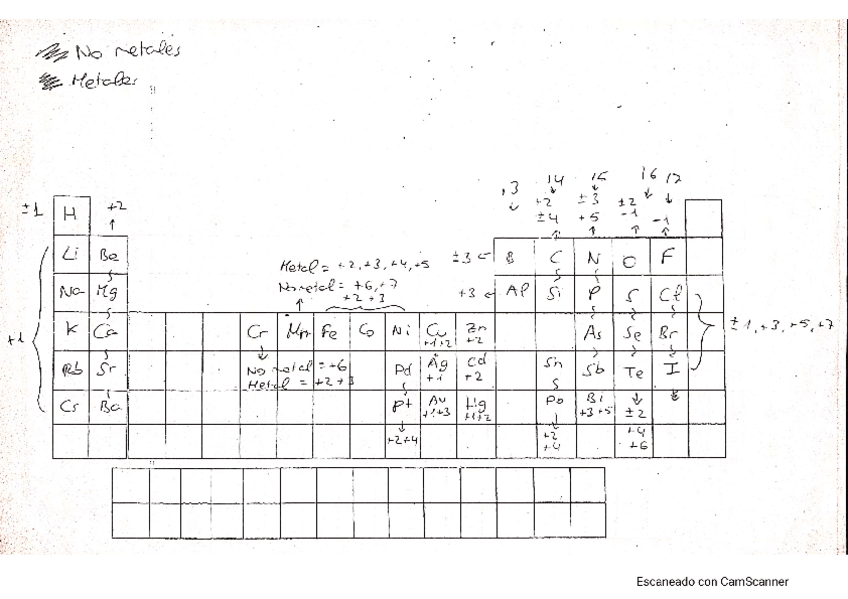 No metales
Metales
,3 14 15 16 17
±1 H +2 +2 ±4 ±3 +5 ±2 -1 -1
Li Be ±3 B C N O F
Metal = +2, +3, +4, +5
No metal = +6, +7
+2 +3
Na Mg +3 Al Si P S Cl
+1 K Ca Cr Mn Fe Co Ni Cu +1+2 Zn +2 As Se Br ±1, +3, +5, +7
Rb Sr No metal = +6 Pd Ag +1 Cd +2 Sn Sb Te I
Metal = +2 +3
Cs Ba Pt Au +1+3 Hg +1+2 Po Bi +3 +5 ±2
+2+4 +2 +4 +4 +6
Escaneado con CamScanner